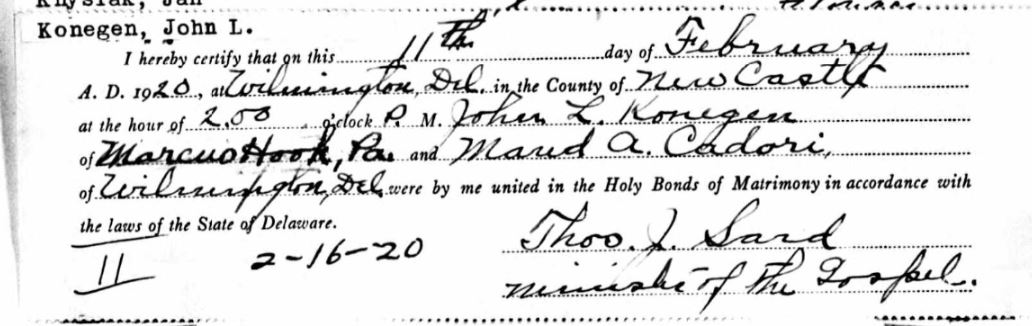 Konegen, John L.
I hereby certify that on this 11th day of February
A. D. 1920, at Wilmington, Del. in the County of New Castle
at the hour of 2.00 o'clock P. M. John L. Konegen
of Marcus Hook, Pa. and Maud A. Cadori,
of Wilmington, Del were by me united in the Holy Bonds of Matrimony in accordance with
the laws of the State of Delaware.
Thos. J. Sard
11 2-16-20
minister of the Gospel.